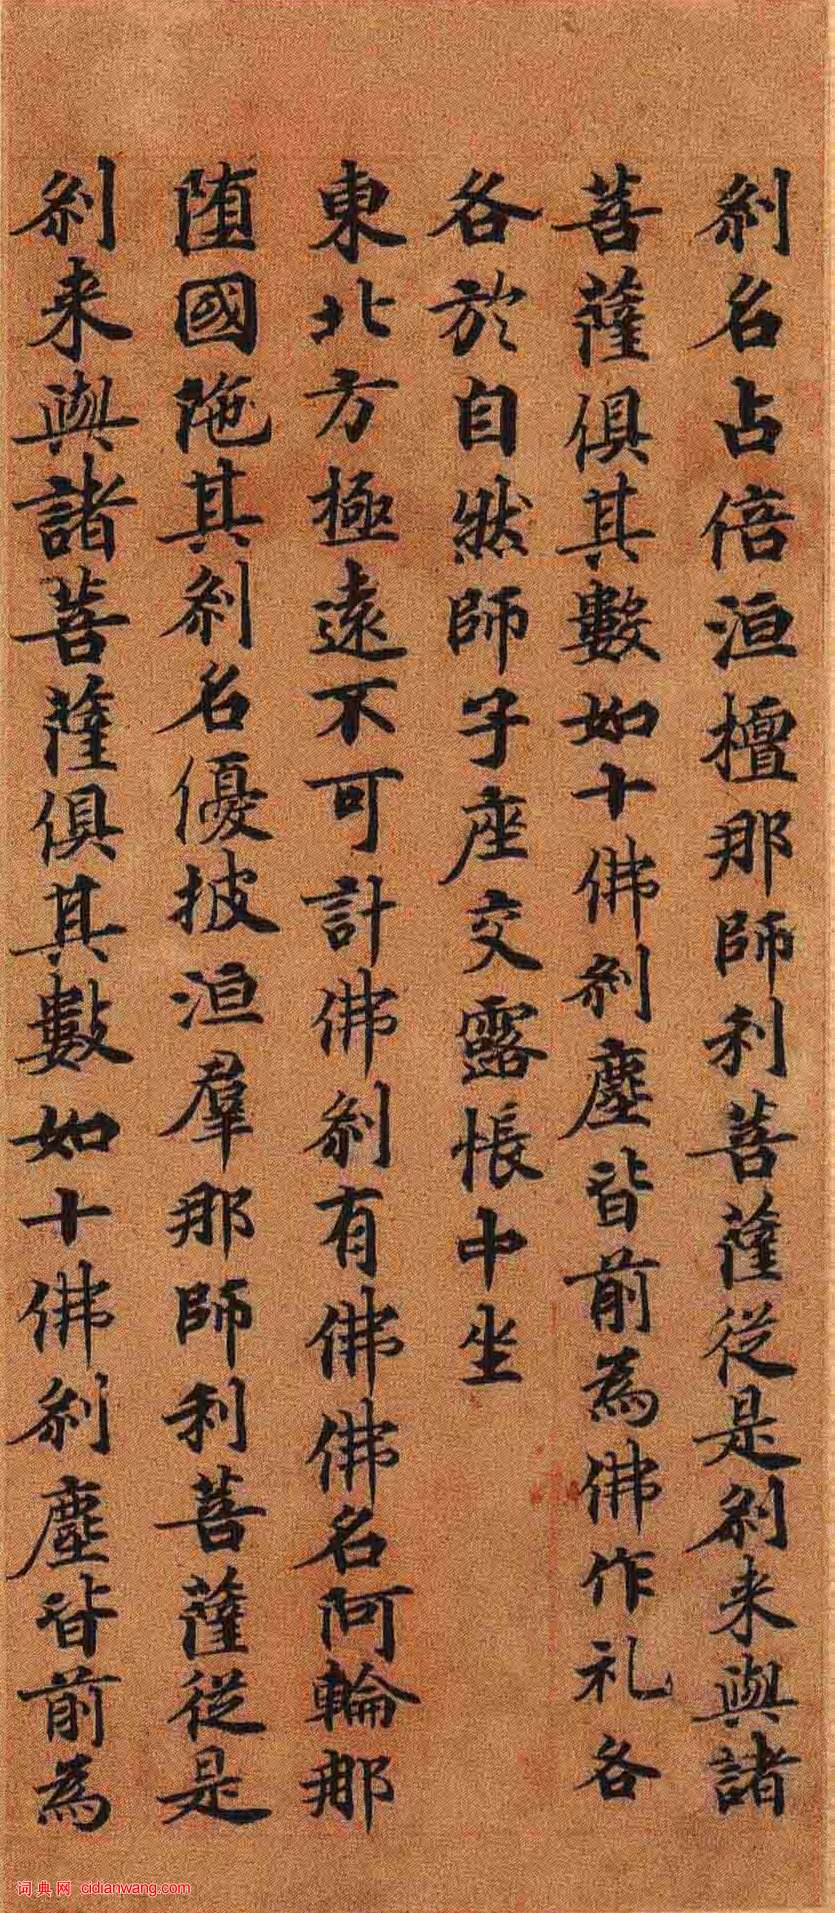 刹名占倍洹檀那師利菩薩従是刹来與諸
菩薩俱其數如十佛刹塵皆前為佛作礼各
各於自然師子座交露帳中坐
東北方極遠不可計佛刹有佛佛名阿輪那
堕國陁其刹名優披洹羣那師利菩薩従是
刹来與諸菩薩俱其數如十佛刹塵皆前為
词典网 cidianwang.com